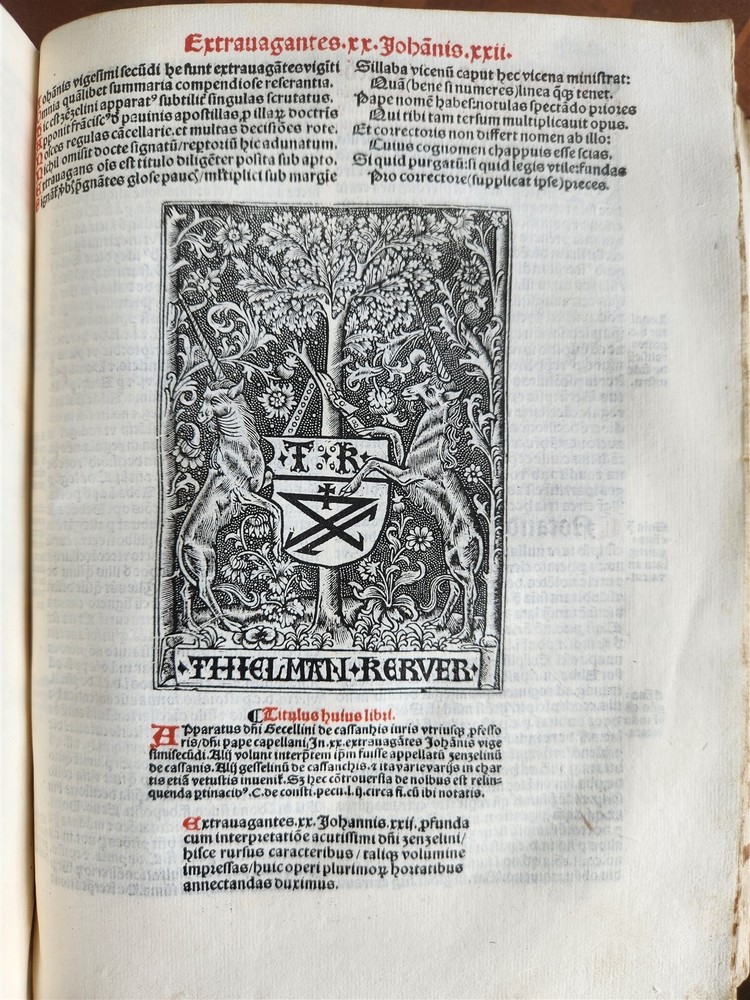 Extrauagantes.xx.Johãnis.xxii.
Johãnis vigesimi secũdi he sunt extrauagãtes vigĩti
Omnia quãlibet summaria compendiose reserantia.
Hic est zẽzelini apparatꝰ subtilis singulas scrutatus.
Apponit frãciscꝰ ď pauinis apostillas, ꝓ illaꝝ doctris
Noĩces regulas cãcellarie. et multas decisiões rote.
Nichil omisit docte signatũ/reptoriũ hic adunatum.
Extrauagans oĩs est titulo diligẽter posita sub apto.
glose paucꝭ/ multiplici sub margie
Sillaba vicenũ caput hec vicena ministrat:
Quã(bene si numeres)linea q̃qꝫ tenet.
Pape nomẽ habes:notulas spectãdo priores
Qui tibi tam tersum multiplicauit opus.
Et correctoris non differt nomen ab illo:
Cuius cognomen chappuis esse scias.
Si quid purgatũ:si quid legis vtile:fundas
Pro correctore(supplicat ipse)preces.
T K
THIELMAN KERVER
¶Titulus huius libri.
Apparatus dñi Gecellini de cassanhis iuris vtriusqꝫ ꝓfesso
ris/dñi pape capellani, In.xx.extrauagãtes Johãnis vige
simisecũdi. Alij volunt interp̃tem ip̃m fuisse appellatũ zenzelinũ
de cassanis. Alij gesselinũ de cassanchis. ⁊ ita varie varijs in char
tis etiã vetustis inuenit᷑. Sꝫ hec cõtrouersia de noĩbus est relin-
quenda ꝑtinacibꝰ. C. de consti. pecu. l. ij. circa fi. cũ ibi notatis.
Extrauagantes.xx.Johannis.xxij. ꝓfunda
cum interpretatiõe acutissimi dñi zenzelini/
hisce rursus caracteribus/taliqꝫ volumine
impressas/huic operi plurimoꝝ hortatibus
annectandas duximus.